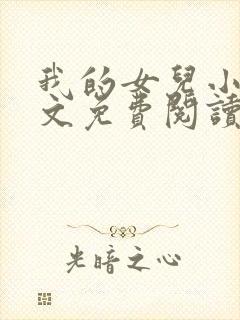 我的女兒小
文免費閱讀
光暗之心